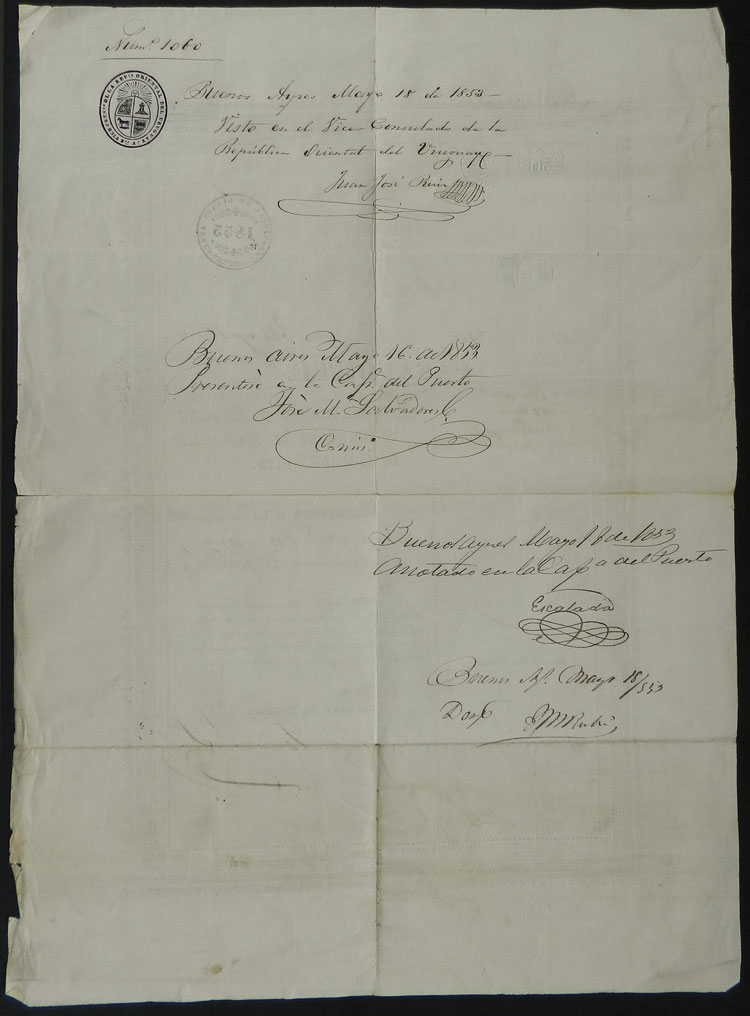 Num.º 1060
Buenos Ayres Mayo 18 de 1853 -
Visto en el Vice Consulado de la
República Oriental del Uruguay -
Juan José Ruiz
1853
Buenos aires Mayo 16. de 1853
Presentése en la Cap.ª del Puerto
José M. Salvadores
Buenos Ayres Mayo 18 de 1853
Anotado en la Cap.ª del Puerto
Escalada
Buenos Ay.s Mayo 18/853